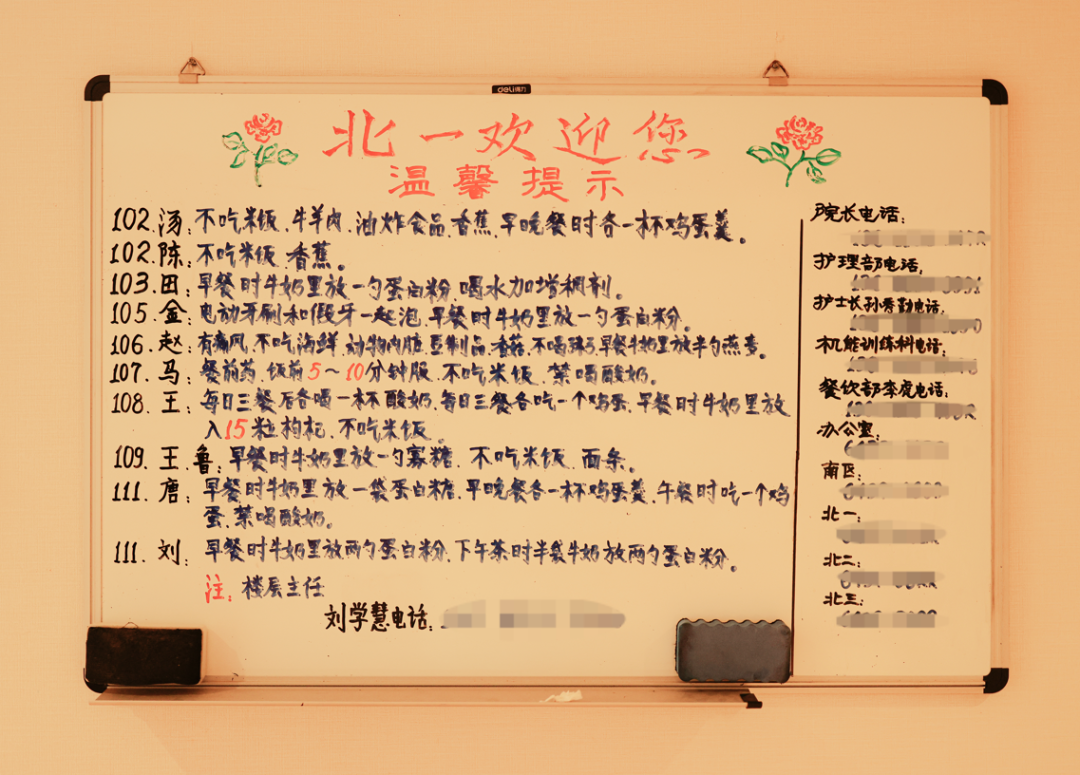 deli得力
北一欢迎您
温馨提示
102.汤:不吃米饭.牛羊肉.油炸食品.香蕉.早晚餐时各一杯鸡蛋羹。
102.陈:不吃米饭.香蕉。
103.田:早餐时牛奶里放一勺蛋白粉.喝水加增稠剂。
105.金:电动牙刷和假牙一起泡.早餐时牛奶里放一勺蛋白粉。
106.赵:有痛风.不吃海鲜.动物内脏.豆制品.香菇.不喝粥.早餐牛奶里放半勺燕麦。
107.马:餐前药.饭前5~10分钟服.不吃米饭.禁喝酸奶。
108.王:每日三餐后各喝一杯酸奶.每日三餐各吃一个鸡蛋.早餐时牛奶里放
入15粒枸杞.不吃米饭。
109.王鲁:早餐时牛奶里放一勺寡糖.不吃米饭.面条。
111.唐:早餐时牛奶里放一袋蛋白糖.早晚餐各一杯鸡蛋羹.午餐时吃一个鸡
蛋.禁喝酸奶。
111.刘:早餐时牛奶里放两勺蛋白粉.下午茶时半袋牛奶放两勺蛋白粉。
注:楼层主任
刘学慧电话:
院长电话:
护理部电话:
护士长孙秀勤电话:
机能训练科电话:
餐饮部李虎电话:
办公室:
南区:
北一:
北二:
北三: